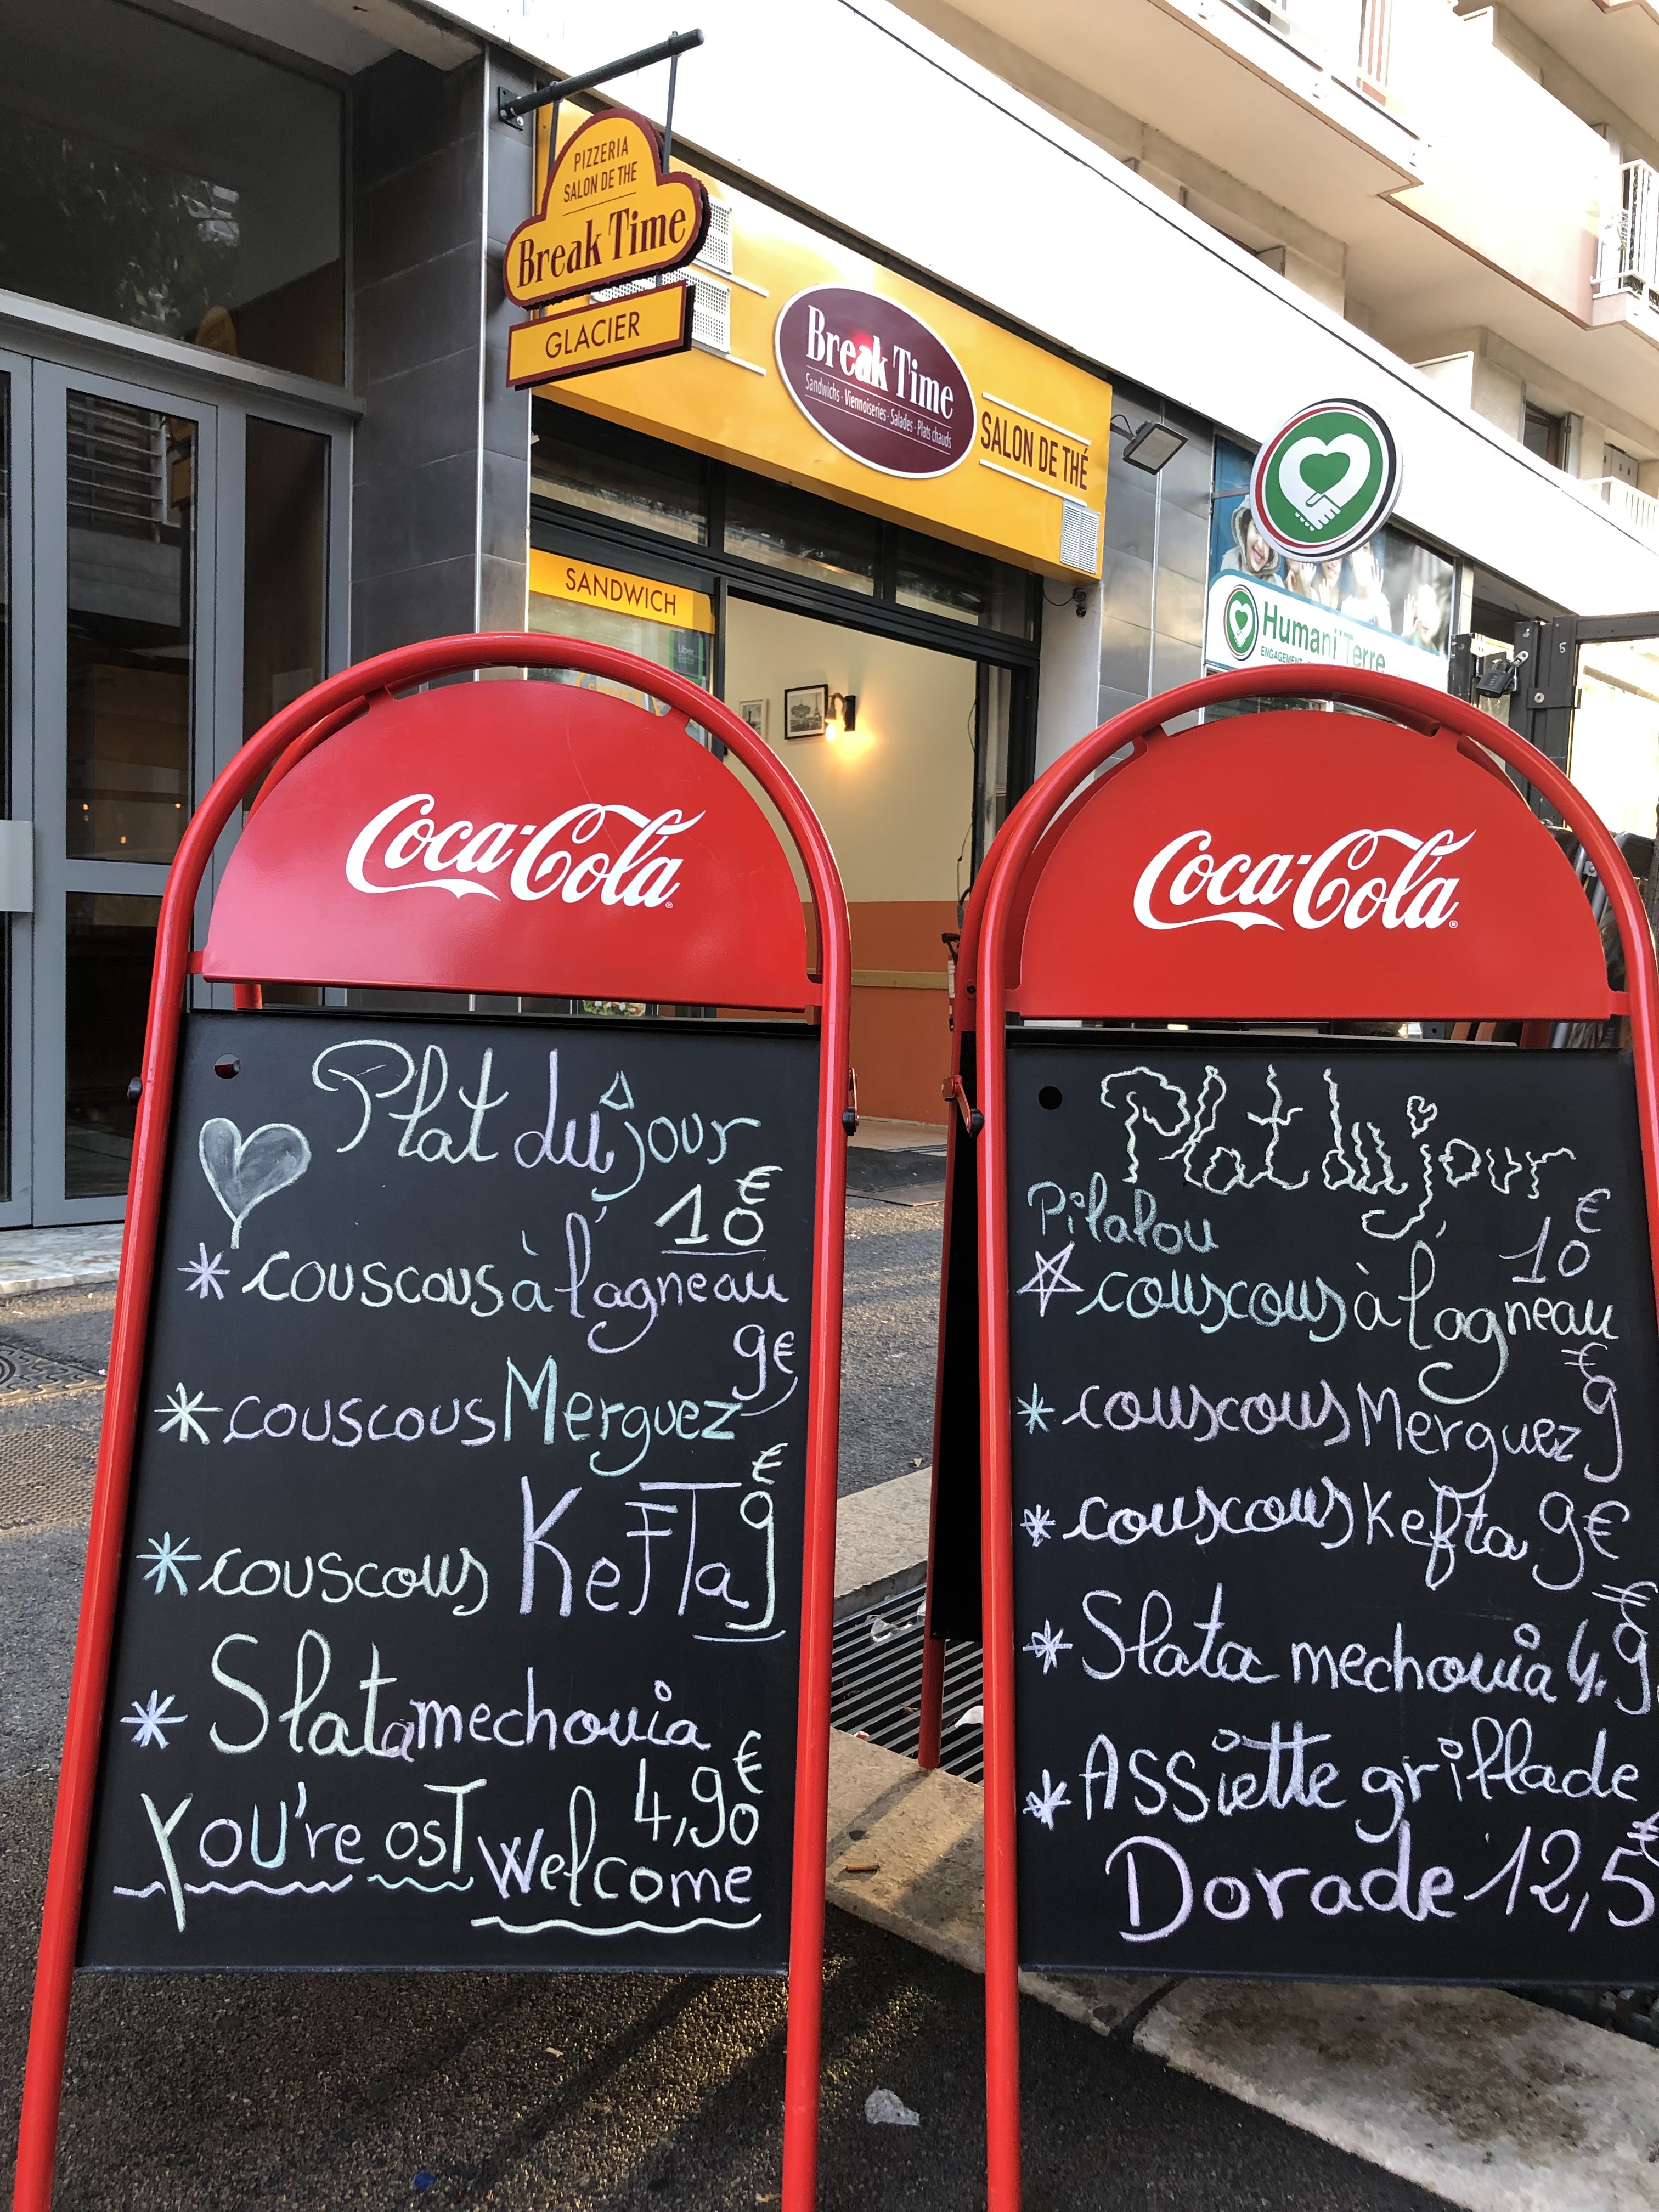 PIZZERIA
SALON DE THE
Break Time
GLACIER
Break Time
Sandwichs - Viennoiseries - Salades - Plats chauds
SALON DE THÉ
SANDWICH
Uber
Eats
Humani'Terre
ENGAGEMENT
5
Coca-Cola
Plat du jour
10€
* couscous à l'agneau
9€
* couscous Merguez
€
* couscous Kefta 9
* Slata mechouia
4,90€
You're osT Welcome
Coca-Cola
Plat du jour
Pilalou
10€
couscous à l'agneau
€
* couscous Merguez 9
* couscous Kefta 9€
€
* Slata mechouia 4,9
* Assiette grillade
Dorade 12,5€